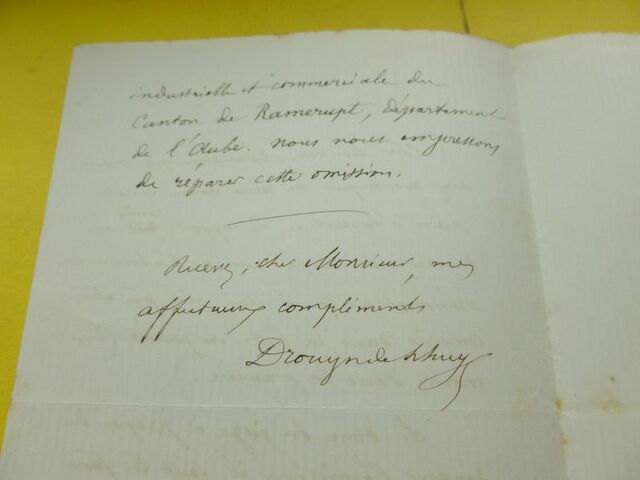 industrielle et commerciale du
Canton de Ramerupt, département
de l'Aube. nous nous empressons
de réparer cette omission.
Recevez, cher Monsieur, mes
affectueux compliments
Drouyn de Lhuys